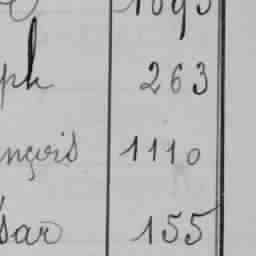 ph 263
nçois 1110
sar 155